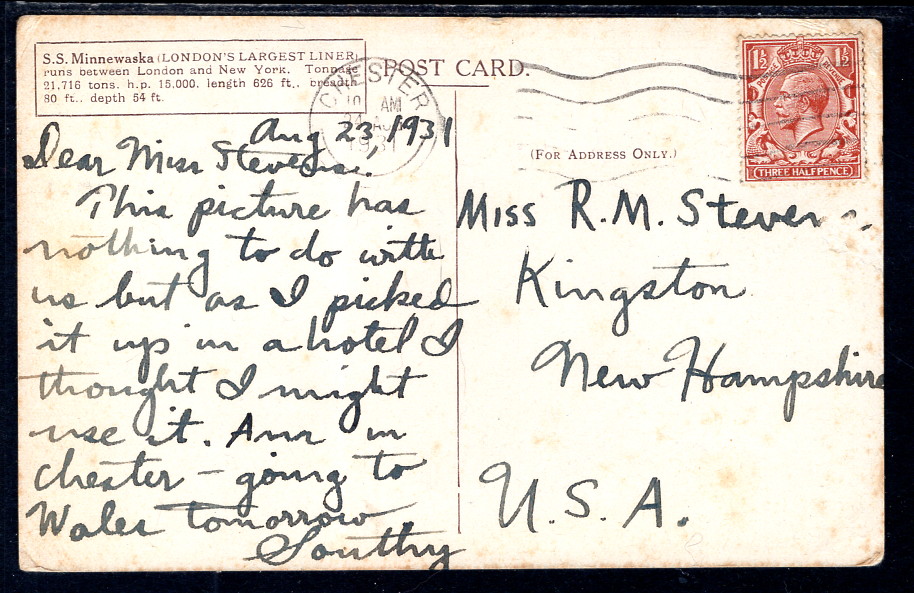 S.S. Minnewaska (LONDON'S LARGEST LINER)
runs between London and New York. Tonnage
21,716 tons. h.p. 15,000. length 626 ft., breadth
80 ft., depth 54 ft.
POST CARD.
CHESTER
10 AM
24 AU
1931
(FOR ADDRESS ONLY.)
1½ 1½
POSTAGE REVENUE
THREE HALFPENCE
Aug 23, 1931
Dear Miss Stevens.
This picture has
nothing to do with
us but as I picked
it up in a hotel I
thought I might
use it. Am in
Chester – going to
Wales tomorrow
Southy
Miss R.M. Stevens.
Kingston
New Hampshire
U.S.A.